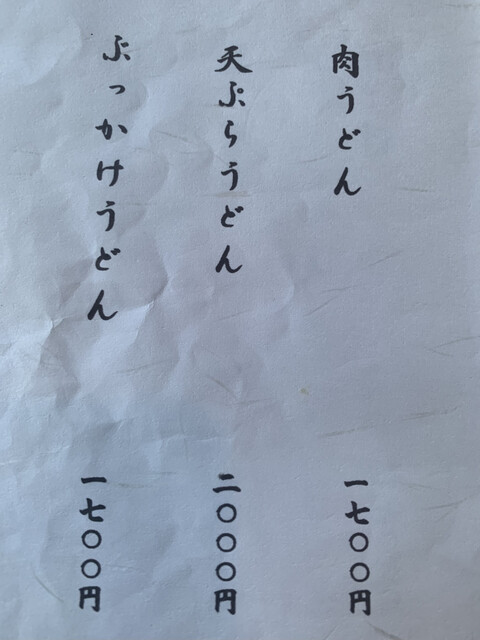 肉うどん 一七〇〇円
天ぷらうどん 二〇〇〇円
ぶっかけうどん 一七〇〇円